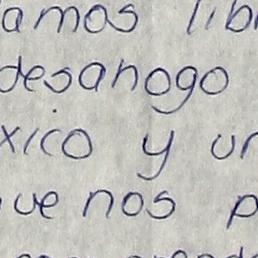 amos lib
desahogo
xico y un
ue nos p